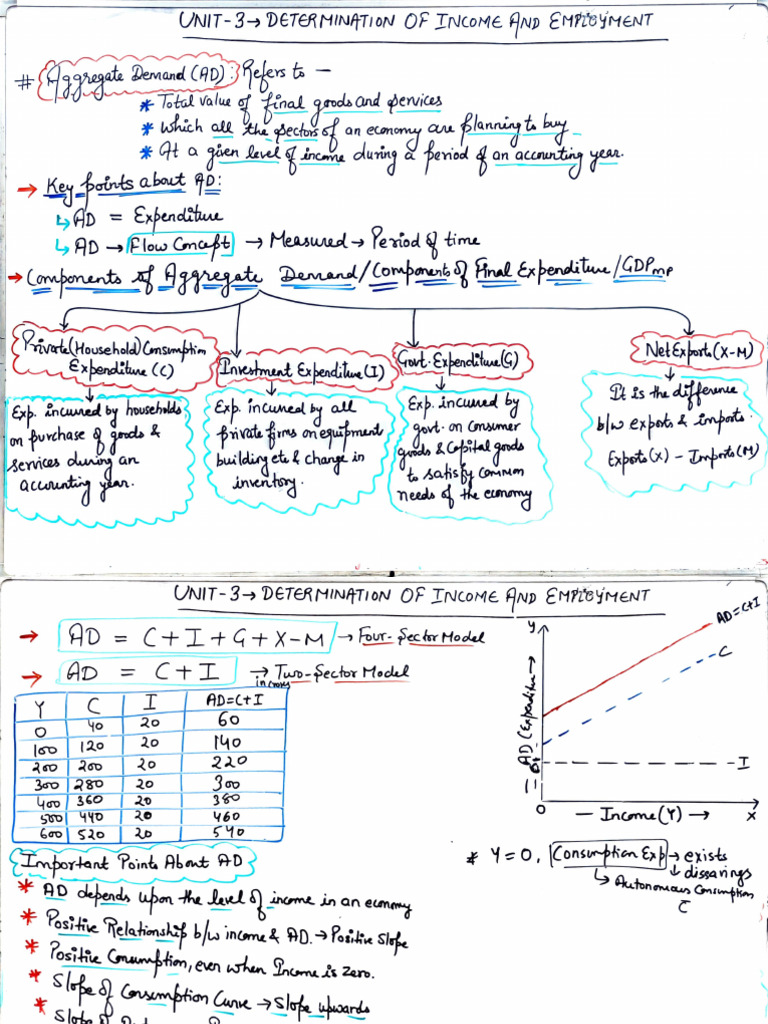 UNIT-3→ DETERMINATION OF INCOME AND EMPLOYMENT
# Aggregate Demand (AD): Refers to —
* Total value of final goods and services
* which all the sectors of an economy are planning to buy
* At a given level of income during a period of an accounting year.
→ Key points about AD:
↳ AD = Expenditure
↳ AD → Flow Concept → Measured → Period of time
→ Components of Aggregate Demand/Components of Final Expenditure/GDPMP
Private (Household) Consumption
Expenditure (C)
Exp. incurred by households
on purchase of goods &
services during an
accounting year.
Investment Expenditure (I)
Exp. incurred by all
private firms on equipment
building etc & change in
inventory.
Govt. Expenditure (G)
Exp. incurred by
govt. on consumer
goods & Capital goods
to satisfy common
needs of the economy
Net Exports (X-M)
It is the difference
b/w exports & imports.
Exports (X) - Imports (M)
UNIT-3→ DETERMINATION OF INCOME AND EMPLOYMENT
→ AD = C+I+G+X-M → Four-Sector Model
→ AD = C+I → Two-Sector Model
in crores
Y C I AD=C+I
0 40 20 60
100 120 20 140
200 200 20 220
300 280 20 300
400 360 20 380
500 440 20 460
600 520 20 540
y
AD (Expenditure →
AD=C+I
C
I
0
— Income (Y) →
x
* Y=0, Consumption Exp → exists
↓ dissavings
↳ Autonomous Consumption
C̄
Important Points About AD
* AD depends upon the level of income in an economy
* Positive Relationship b/w income & AD. → Positive Slope
* Positive Consumption, even when Income is zero.
* Slope of Consumption Curve → Slope upwards
* Slope of